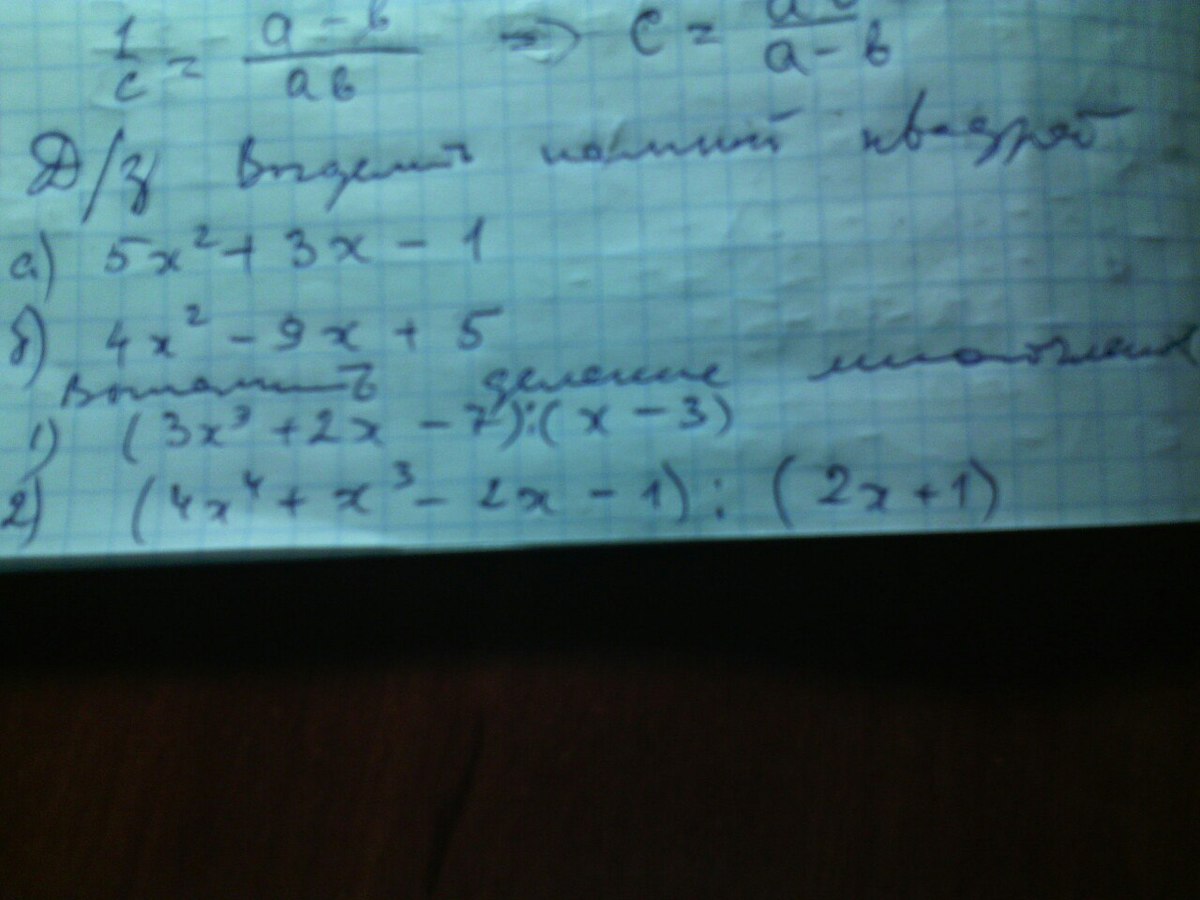 1/c = (a - b)/ab => c = ab/(a - b)
Д/з Выделить полный квадрат
а) 5x² + 3x - 1
б) 4x² - 9x + 5
Выполнить деление многочленов
1) (3x³ + 2x - 7):(x - 3)
2) (4x⁴ + x³ - 2x - 1) : (2x + 1)